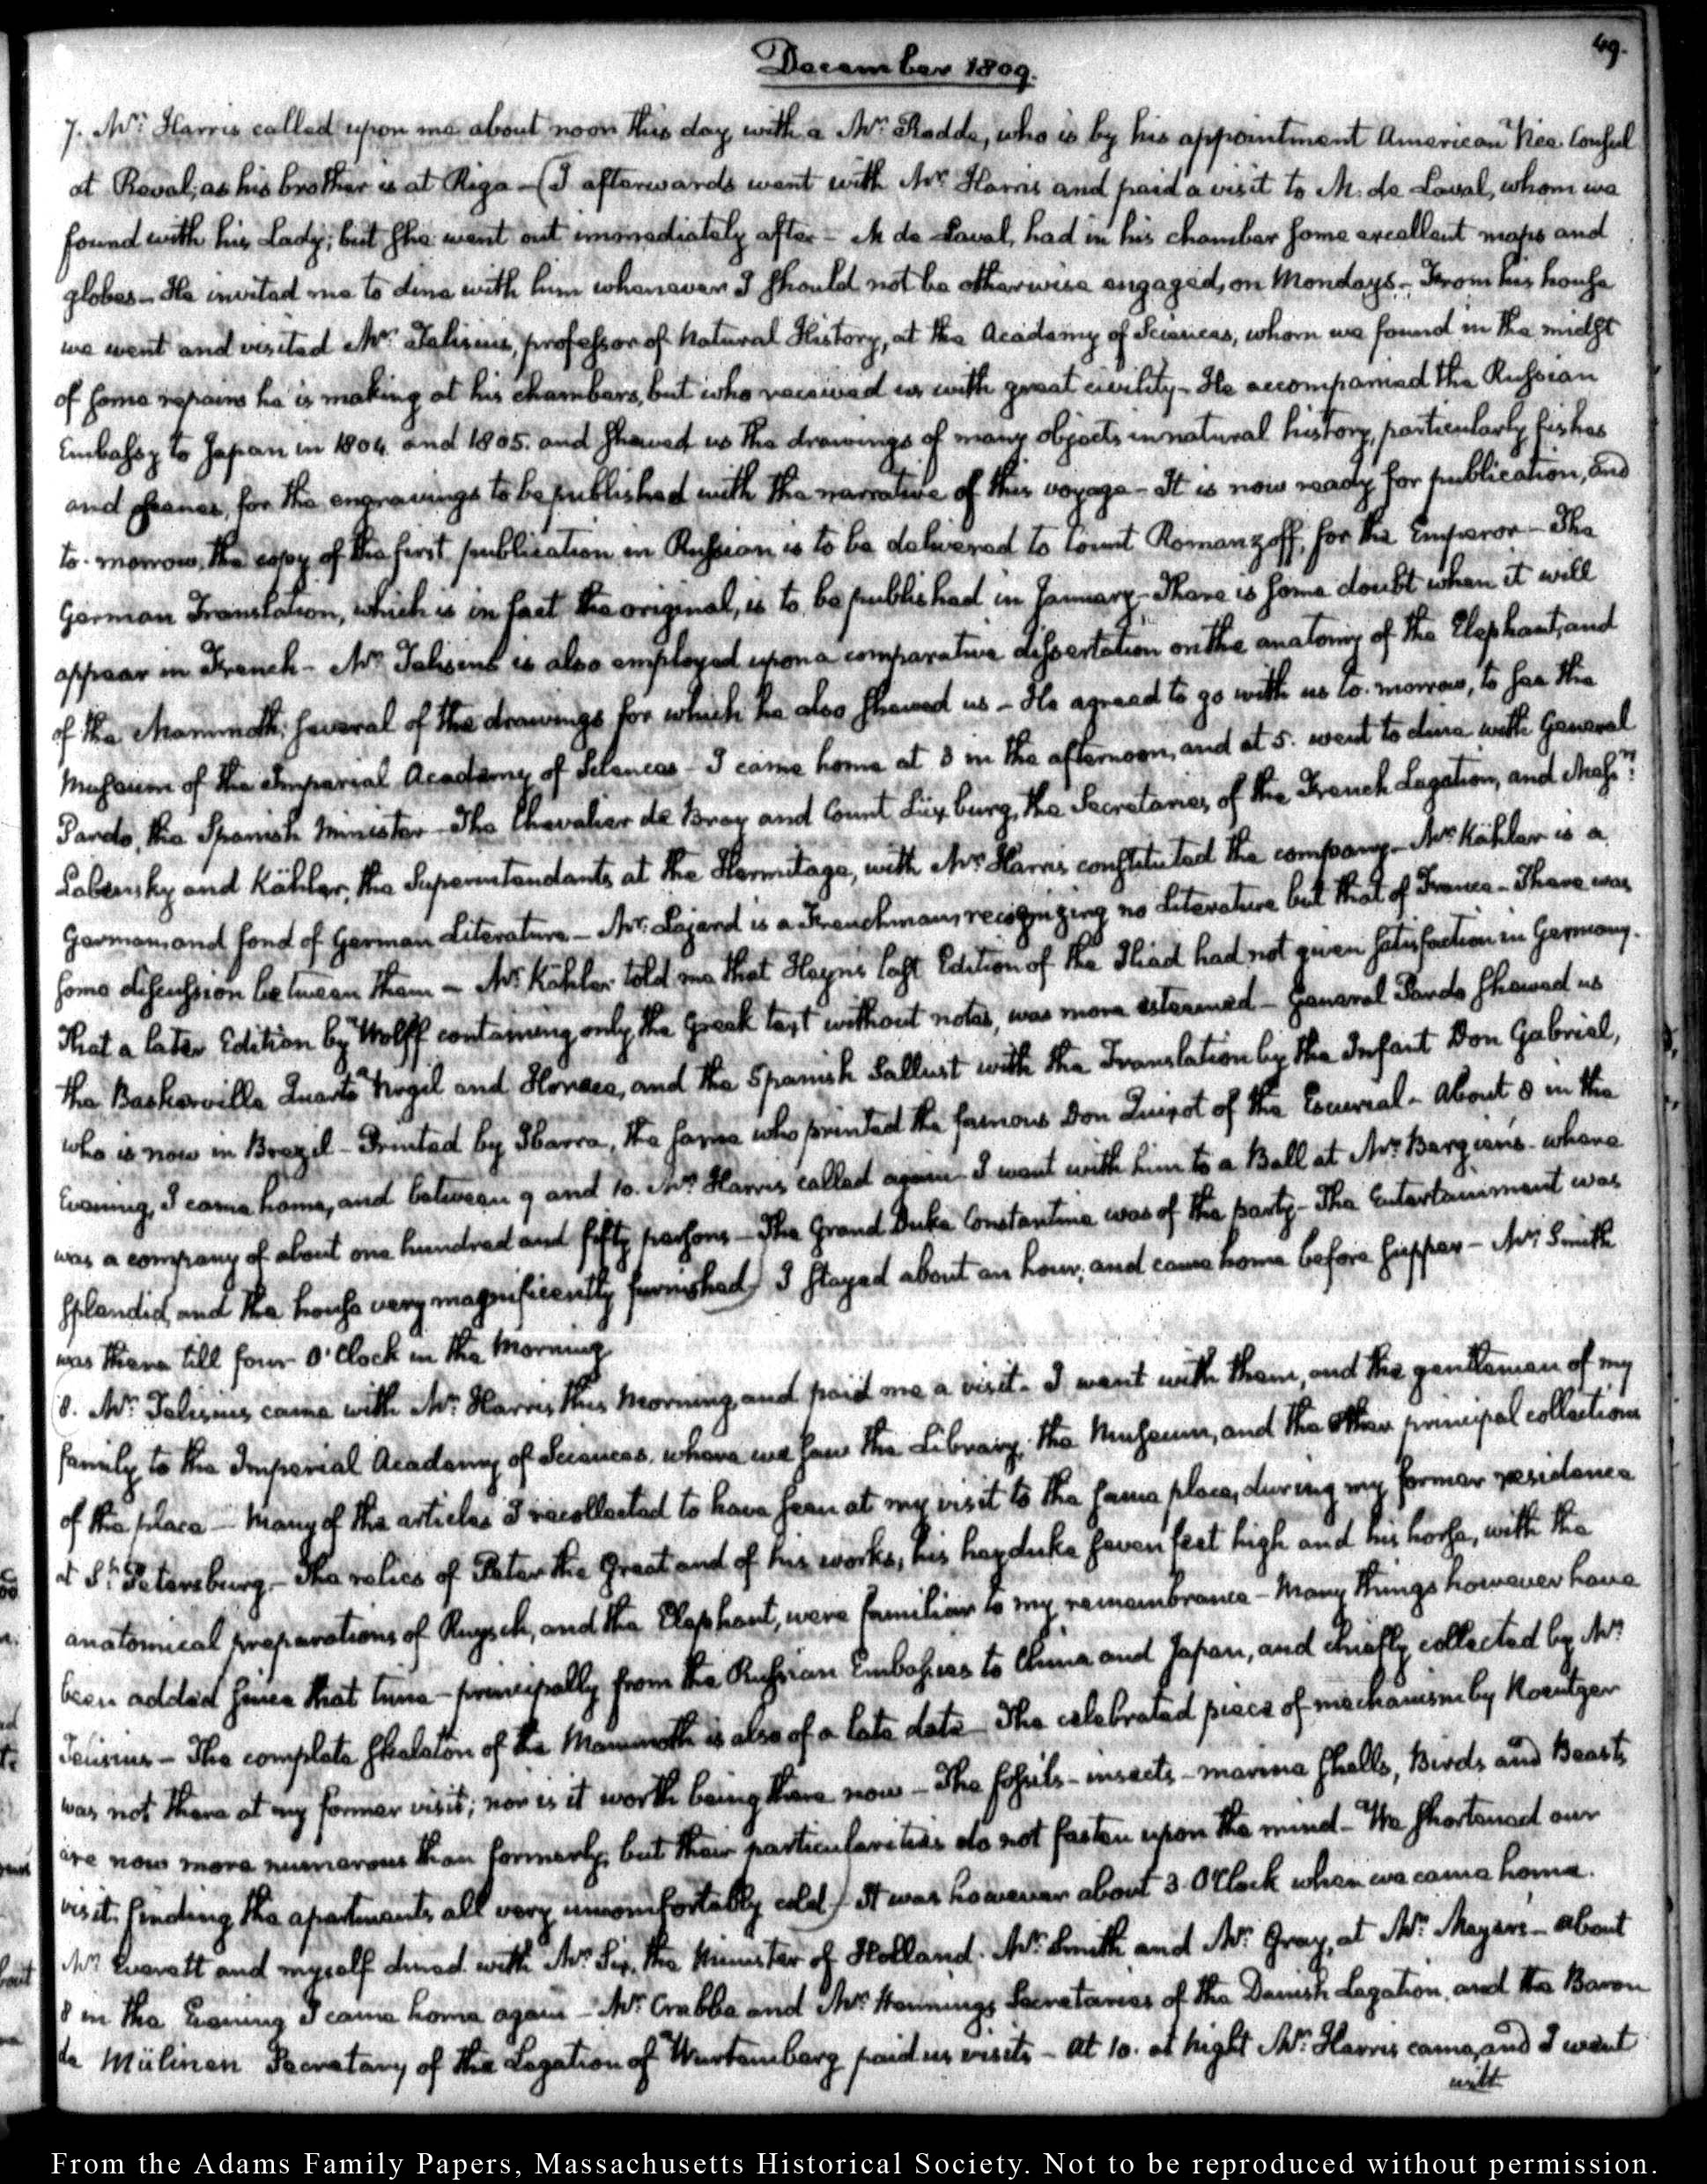 49.
December 1809.
7. Mr. Harris called upon me about noon this day, with a Mr. Rodde, who is by his appointment American Vice-Consul
at Reval, as his brother is at Riga — (I afterwards went with Mr. Harris and paid a visit to M. de Laval, whom we
found with his Lady; but she went out immediately after — M de Laval, had in his chamber some excellent maps and
globes — He invited me to dine with him whenever I should not be otherwise engaged, on Mondays — From his house
we went and visited Mr. Telisius, professor of Natural History, at the Academy of Sciences, whom we found in the midst
of some repairs he is making at his chambers, but who received us with great civility — He accompanied the Russian
Embassy to Japan in 1804 and 1805. and shewed us the drawings of many objects in natural history, particularly fishes
and scenes, for the engravings to be published with the narrative of this voyage — It is now ready for publication, and
to-morrow, the copy of the first publication in Russian is to be delivered to Count Romanzoff, for the Emperor — The
German Translation, which is in fact the original, is to be published in January — There is some doubt when it will
appear in French — Mr. Telisius is also employed upon a comparative dissertation on the anatomy of the Elephant, and
of the Mammoth; several of the drawings for which he also shewed us — He agreed to go with us to-morrow, to see the
Museum of the Imperial Academy of Sciences — I came home at 3 in the afternoon, and at 5. went to dine with General
Pardo, the Spanish Minister — The Chevalier de Bray and Count Luxburg, the Secretaries of the French Legation, and Messrs.
Labensky and Köhler, the Superintendants at the Hermitage, with Mr. Harris constituted the company — Mr. Köhler is a
German, and fond of German Literature — Mr. Lajard is a Frenchman, recognizing no Literature but that of France — There was
some discussion between them — Mr. Köhler told me that Heyne's last Edition of the Iliad had not given satisfaction in Germany.
That a later Edition by Wolff containing only the Greek text without notes, was more esteemed — General Pardo shewed us
the Baskerville Quarto Virgil and Horace, and the Spanish Sallust with the Translation by the Infant Don Gabriel,
who is now in Brazil — Printed by Ibarra, the same who printed the famous Don Quixot of the Escurial — About 8 in the
Evening, I came home, and between 9 and 10. Mr. Harris called again — I went with him to a Ball at Mr. Bergien's — where
was a company of about one hundred and fifty persons — The Grand Duke Constantine was of the party — The Entertainment was
splendid, and the house very magnificently furnished) I stayed about an hour; and came home before supper — Mr. Smith
was there till four O'Clock in the Morning.
8. Mr. Telisius came with Mr. Harris this Morning, and paid me a visit — I went with them, and the gentlemen of my
family to the Imperial Academy of Sciences, where we saw the Library, the Museum, and the other principal collections
of the place — Many of the articles I recollected to have seen at my visit to the same place, during my former residence
at St. Petersburg — The relics of Peter the Great and of his works, his heyduke seven feet high and his horse, with the
anatomical preparations of Ruysch, and the Elephant, were familiar to my remembrance — Many things however have
been added since that time — principally from the Russian Embassies to China and Japan, and chiefly collected by Mr.
Telisius — The complete skeleton of the Mammoth is also of a late date — The celebrated piece of mechanism by Roentgen
was not there at my former visit; nor is it worth being there now — The fossils — insects — marine shells, Birds and Beasts
are now more numerous than formerly, but their particularities do not fasten upon the mind — We shortened our
visit, finding the apartments all very uncomfortably cold) It was however about 3 O'Clock when we came home.
Mr. Everett and myself dined with Mr. Six, the Minister of Holland. Mr. Smith and Mr. Gray, at Mr. Meyer's — about
8 in the Evening I came home again — Mr. Crabbe and Mr. Hennings Secretaries of the Danish Legation, and the Baron
de Mülinen Secretary of the Legation of Wurtemberg paid us visits — At 10. at Night Mr. Harris came, and I went
with
From the Adams Family Papers, Massachusetts Historical Society. Not to be reproduced without permission.